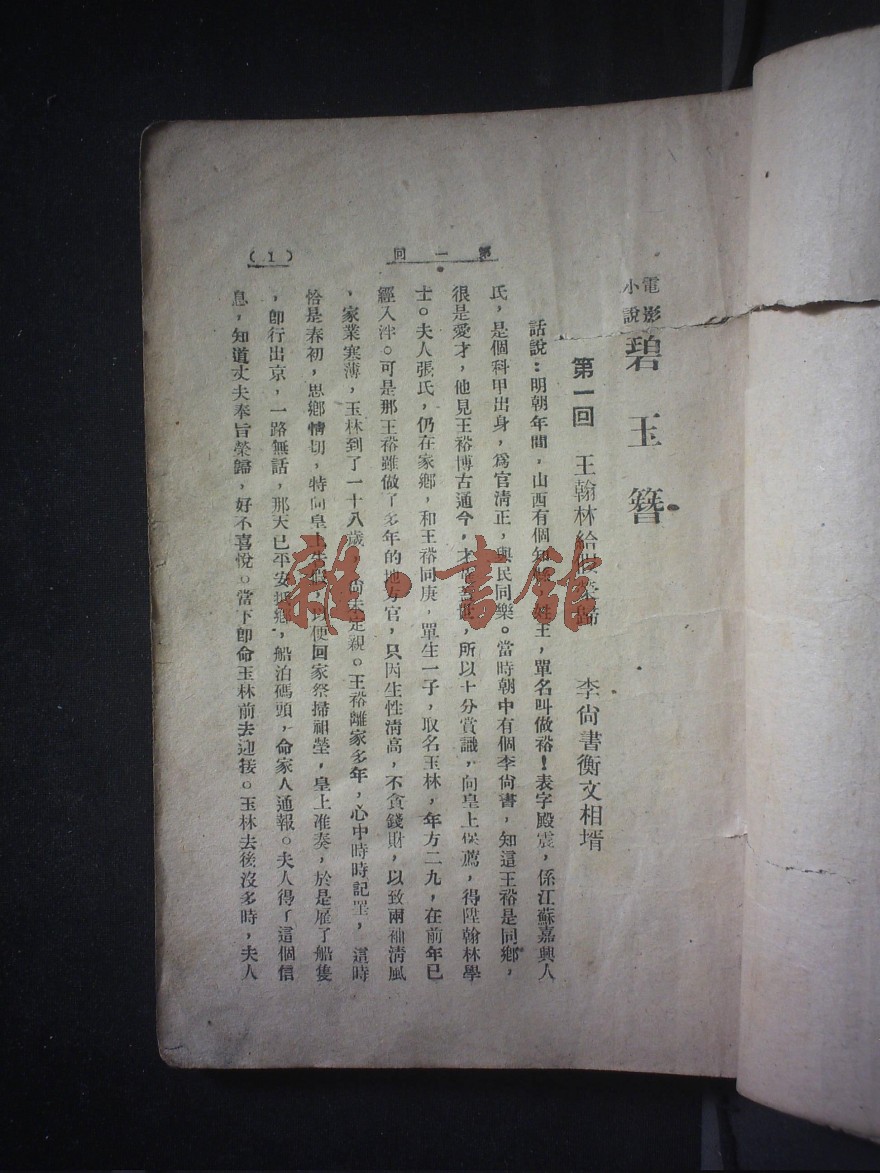 電影
小說
碧玉簪
第一回 王翰林給假榮歸 李尙書衡文相壻
話說：明朝年間，山西有個知縣，姓王，單名叫做裕！表字殿震，係江蘇嘉興人
氏，是個科甲出身，爲官淸正，與民同樂。當時朝中有個李尙書，知這王裕是同鄉，
很是愛才，他見王裕博古通今，才，所以十分賞識，向皇上保薦，得陞翰林學
士。夫人張氏，仍在家鄉，和王裕同庚，單生一子，取名玉林，年方二九，在前年已
經入泮。可是那王裕雖做了多年的地方官，只因生性淸高，不貪錢財，以致兩袖淸風
，家業寒薄，玉林到了一十八歲，尙未定親。王裕離家多年，心中時時記罣，這時
恰是春初，思鄉情切，特向皇上告假，以便回家祭掃祖塋，皇上准奏，於是雇了船隻
，卽行出京，一路無話，那天已平安抵鄉，船泊碼頭，命家人通報。夫人得了這個信
息，知道丈夫奉旨榮歸，好不喜悅。當下卽命玉林前去迎接。玉林去後沒多時，夫人
第一回
(1)
雜·書館